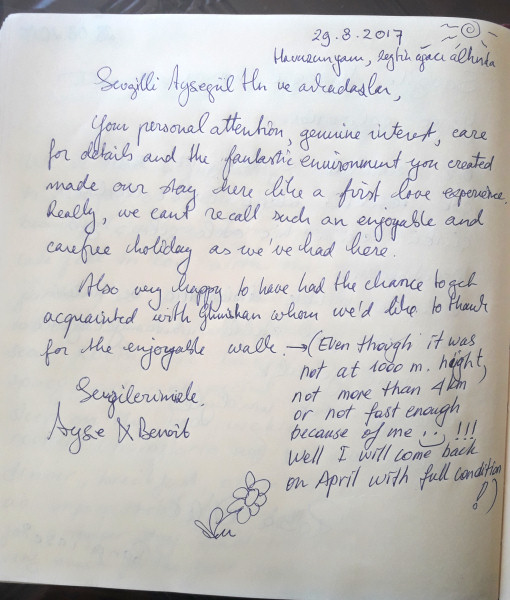 29.8.2017
Havuzunyanı, zeytin ağacı altında
Sevgilli Aysegül Hn ve arkadaslar,
Your personal attention, genuine interest, care
for details and the fantastic environment you created
made our stay here like a first love experience.
Really, we cant recall such an enjoyable and
carefree holiday as we've had here.
Also very happy to have had the chance to get
acquainted with whom we'd like to thank
for the enjoyable walk. → (Even though it was
not at 1000 m. height,
not more than 4 km
or not fast enough
because of me !!!
Well I will come back
on April with full condition
!)
Sevgilerimizle,
Ayse & Benoit